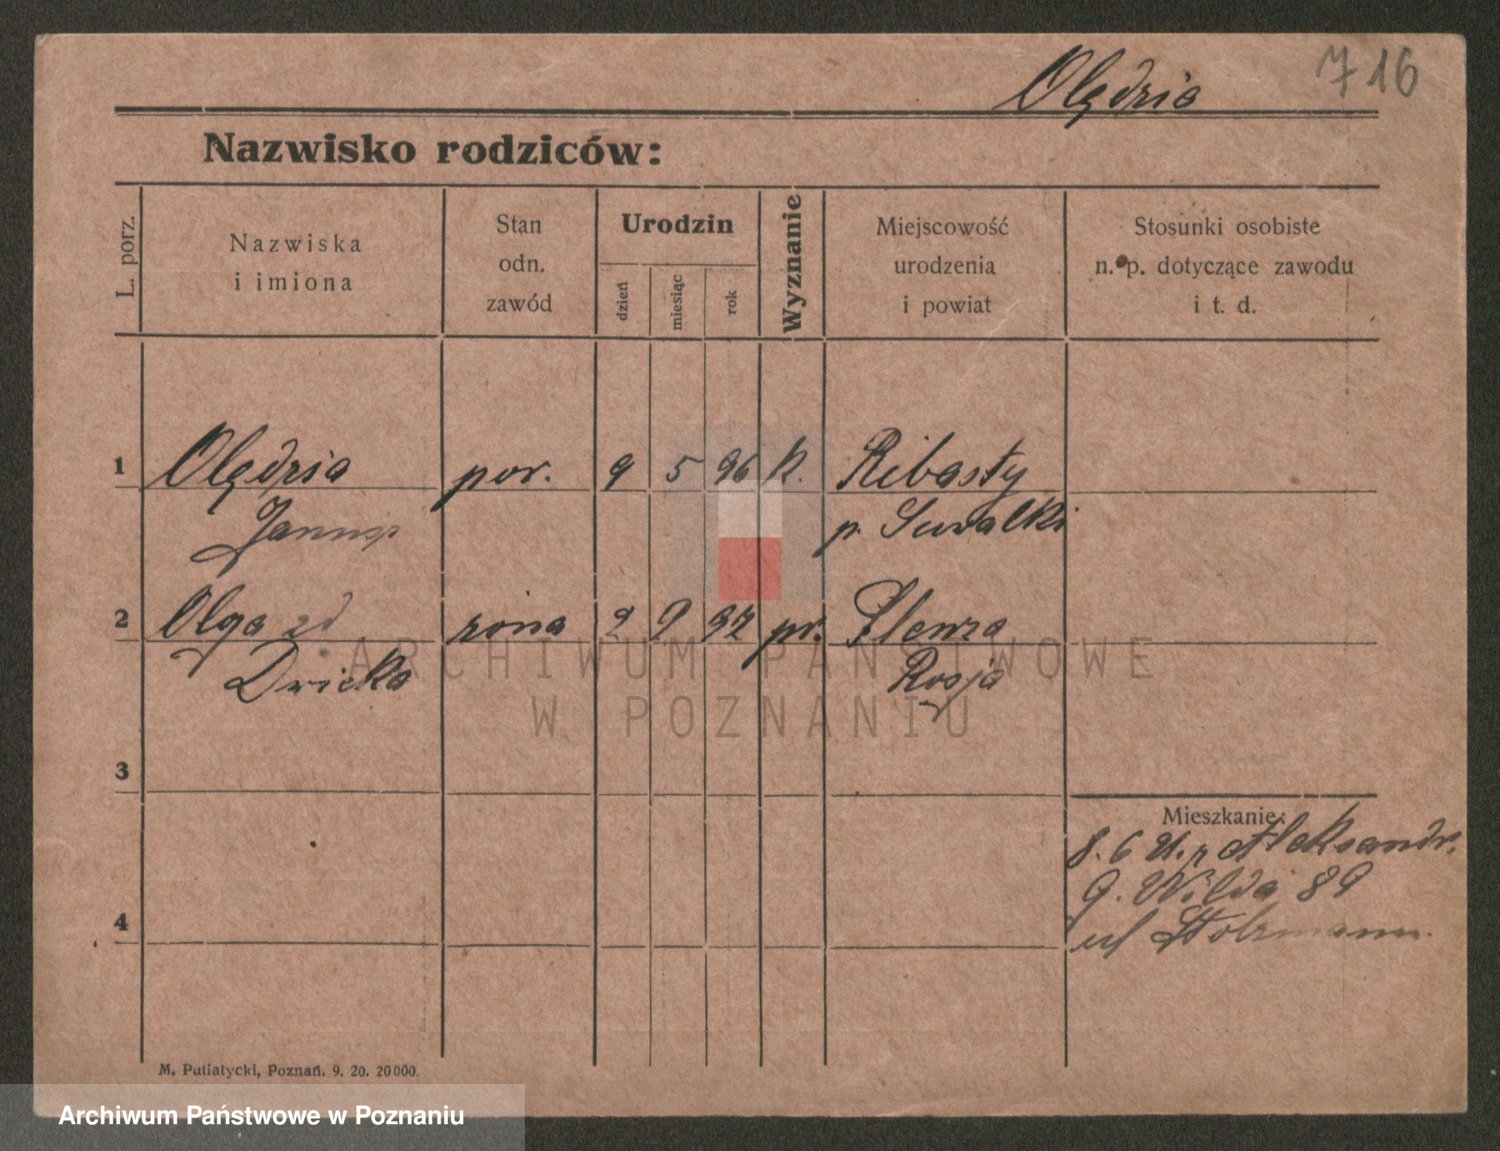 716
Olędzia
Nazwisko rodziców:
L. porz.
Nazwiska
i imiona
Stan
odn.
zawód
Urodzin
dzień
miesiąc
rok
Wyznanie
Miejscowość
urodzenia
i powiat
Stosunki osobiste
n. p. dotyczące zawodu
i t. d.
1 Olędzia por. 9 5 96 k. Ribasty
p. Suwalki
2 Olga zd żona 2 9 97 pr.
Rosja
3
Mieszkanie:
8. 6 Aleksandr.
G. Wilda 89
4
ul
M. Putiatycki, Poznań. 9. 20. 20000.
ARCHIWUM PAŃSTWOWE
W POZNANIU
Archiwum Państwowe w Poznaniu